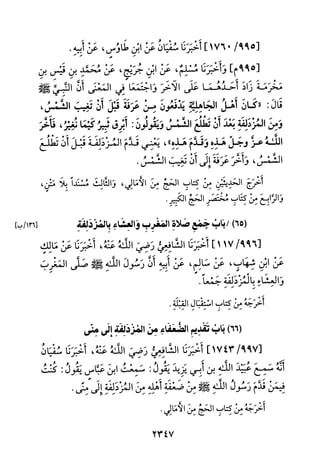 [١٧٦٠/٩٩٥] أَخْبَرَنَا سُفْيَانُ عَنْ ابْنِ طَاوُسٍ، عَنْ أَبِيهِ.
[٩٩٥م] وَأَخْبَرَنَا مُسْلِمٌ، عَنْ ابْنِ جُرَيْجٍ، عَنْ مُحَمَّدِ بنِ قَيْسِ بنِ
مَخْرَمَةَ زَادَ أَحَدُهُمَا عَلَى الآخَرِ وَاجْتَمَعَا فِي المَعْنَى أَنَّ النَّبِيَّ ﷺ
قَالَ: «كَانَ أَهْلُ الجَاهِلِيَّةِ يَدْفَعُونَ مِنْ عَرَفَةَ قَبْلَ أَنْ تَغِيبَ الشَّمْسُ،
وَمِنَ المُزْدَلِفَةِ بَعْدَ أَنْ تَطْلُعَ الشَّمْسُ وَيَقُولُونَ: أَشْرِقْ ثَبِيرُ كَيْمَا نُغِيرُ، فَأَخَّرَ
اللَّهُ عزَّ وجَلَّ هَذِهِ وَقَدَّمَ هَذِهِ»، يَعْنِي قَدَّمَ المُزْدَلِفَةَ قَبْلَ أَنْ تَطْلُعَ
الشَّمْسُ، وَأَخَّرَ عَرَفَةَ إِلَى أَنْ تَغِيبَ الشَّمْسُ.
أَخْرَجَ الحَدِيثَيْنِ مِنْ كِتَابِ الحَجِّ مِنَ الأَمَالِي، وَالثَّالِثَ مُسْنَداً بِلَا مَتْنٍ،
وَالرَّابِعَ مِنْ كِتَابِ مُخْتَصَرِ الحَجِّ الكَبِيرِ.
(٦٥) / بَابُ جَمْعِ صَلَاةِ المَغْرِبِ وَالعِشَاءِ بِالمُزْدَلِفَةِ [١٣٦/ب]
[١١٧/٩٩٦] أَخْبَرَنَا الشَّافِعِيُّ رَضِيَ اللَّهُ عَنْهُ، أَخْبَرَنَا مَالِكٌ
عَنْ ابْنِ شِهَابٍ، عَنْ سَالِمٍ، عَنْ أَبِيهِ أَنَّ رَسُولَ اللَّهِ ﷺ صَلَّى المَغْرِبَ
وَالعِشَاءَ بِالْمُزْدَلِفَةِ جَمْعاً.
أَخْرَجَهُ مِنْ كِتَابِ اسْتِقْبَالِ القِبْلَةِ.
(٦٦) بَابُ تَقْدِيمِ الضُّعَفَاءِ مِنَ المُزْدَلِفَةِ إِلَى مِنًى
[١٧٤٣/٩٩٧] أَخْبَرَنَا الشَّافِعِيُّ رَضِيَ اللَّهُ عَنْهُ، أَخْبَرَنَا سُفْيَانُ
أَنَّهُ سَمِعَ عُبَيْدَ اللَّهِ بن أَبِي يَزِيدَ يَقُولُ: سَمِعْتُ ابنَ عَبَّاسٍ يَقُولُ: كُنْتُ
فِيمَنْ قَدَّمَ رَسُولُ اللَّهِ ﷺ مِنْ ضَعَفَةِ أَهْلِهِ مِنَ المُزْدَلِفَةِ إِلَى مِنًى.
أَخْرَجَهُ مِنْ كِتَابِ الحَجِّ مِنَ الأَمَالِي.
٢٣٤٧